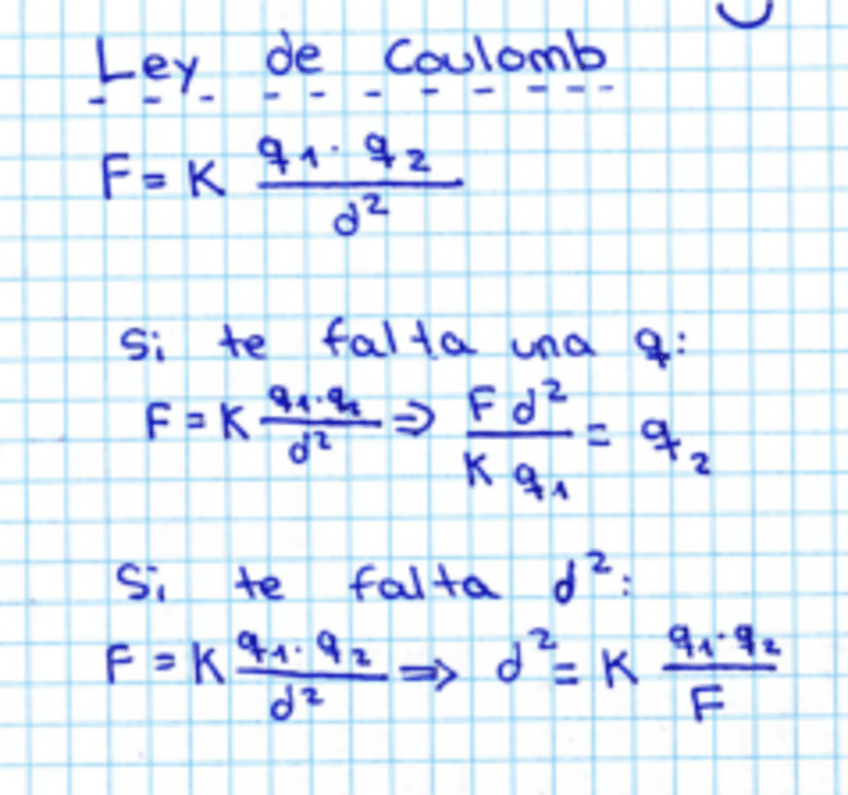 Ley de Coulomb
F = K q₁ · q₂ / d²
Si te falta una q:
F = K q₁ · q₂ / d² ⇒ F d² / K q₁ = q₂
Si te falta d²:
F = K q₁ · q₂ / d² ⇒ d² = K q₁ · q₂ / F